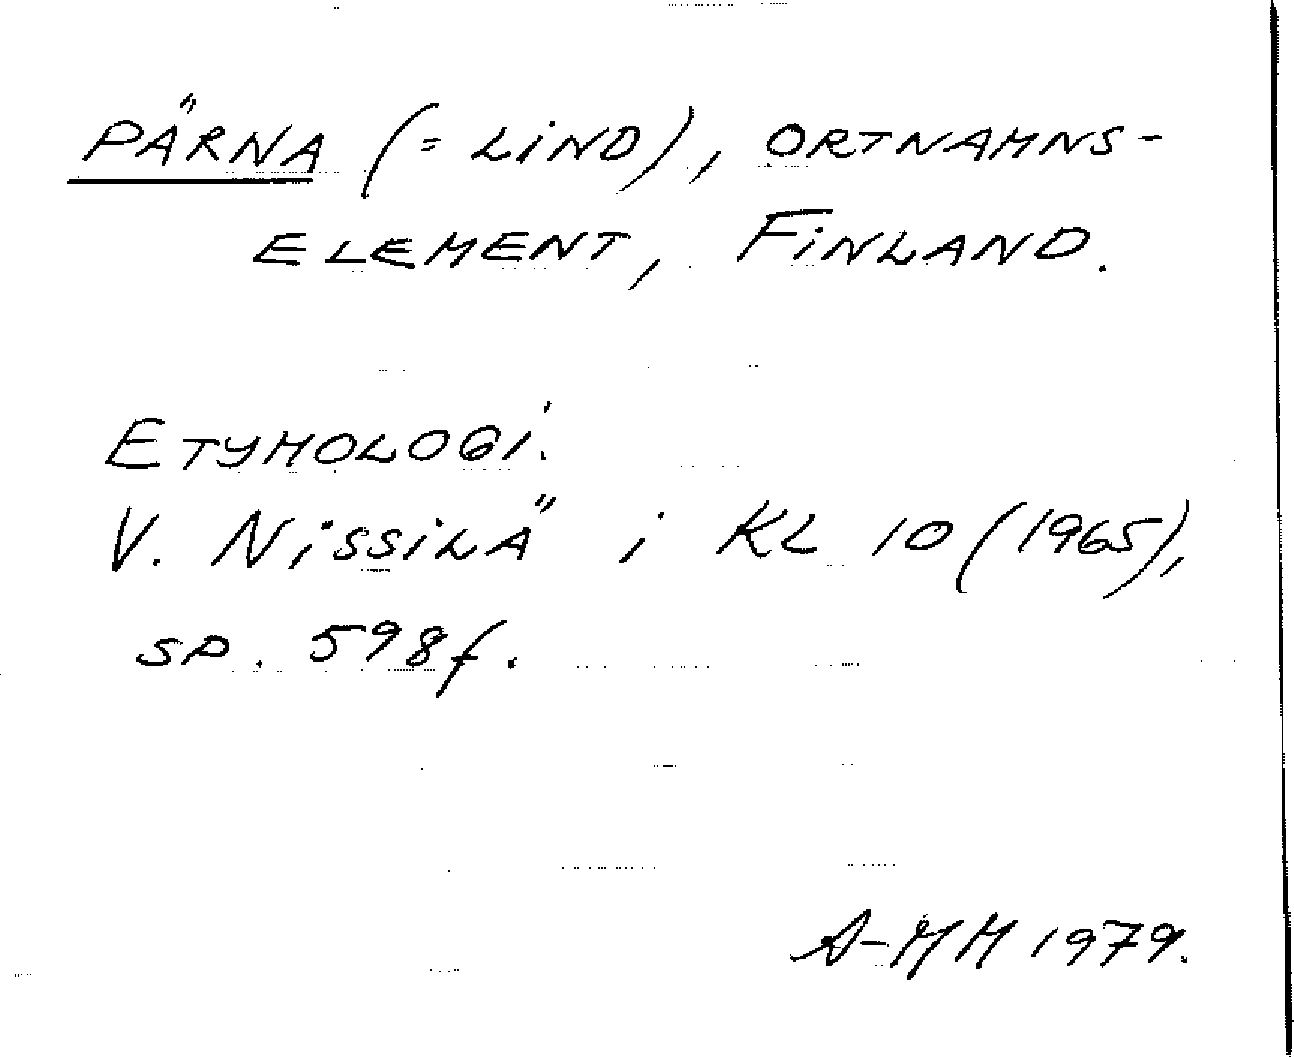 PÄRNA (= LIND), ORTNAMNS-
ELEMENT, FINLAND.
ETYMOLOGI.
V. NISSILÄ i KL 10 (1965),
SP. 598f.
A-MM 1979.